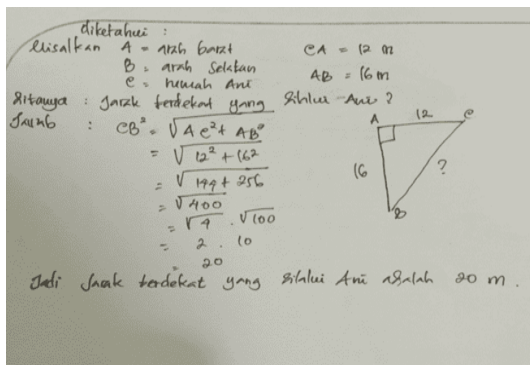 diketahui :
Misalkan A = arah barat CA = 12 m
B = arah Selatan AB = 16 m
C = rumah Ani
Ditanya : Jarak terdekat yang dilalui Ani ?
Jawab : CB² = √AC² + AB²
= √12² + 16²
= √144 + 256
= √400
= √4 . √100
= 2 . 10
= 20
A 12 C
16 ?
B
Jadi Jarak terdekat yang dilalui Ani adalah 20 m .